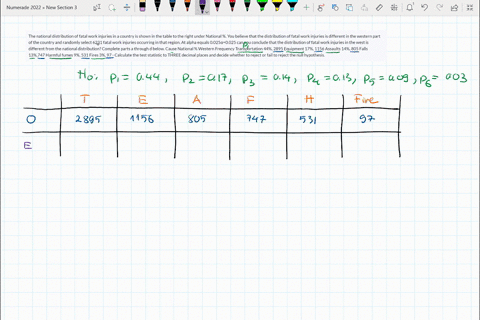 Numerade 2022 > New Section 3
The national distribution of fatal work injuries in a country is shown in the table to the right under National %. You believe that the distribution of fatal work injuries is different in the western part
of the country and randomly select 6231 fatal work injuries occurring in that region. At alpha equals 0.025α=0.025 can you conclude that the distribution of fatal work injuries in the west is
different from the national distribution? Complete parts a through d below. Cause National % Western Frequency Transportation 44%, 2895 Equipment 17%, 1156 Assaults 14%, 805 Falls
13%, 747 Harmful fumes 9%, 531 Fires 3%, 97 . Calculate the test statistic to THREE decimal places and decide whether to reject or fail to reject the null hypothesis.
H₀: p₁ = 0.44, p₂ = 0.17, p₃ = 0.14, p₄ = 0.13, p₅ = 0.09, p₆ = 0.03
T E A F H Fire
O 2895 1156 805 747 531 97
E